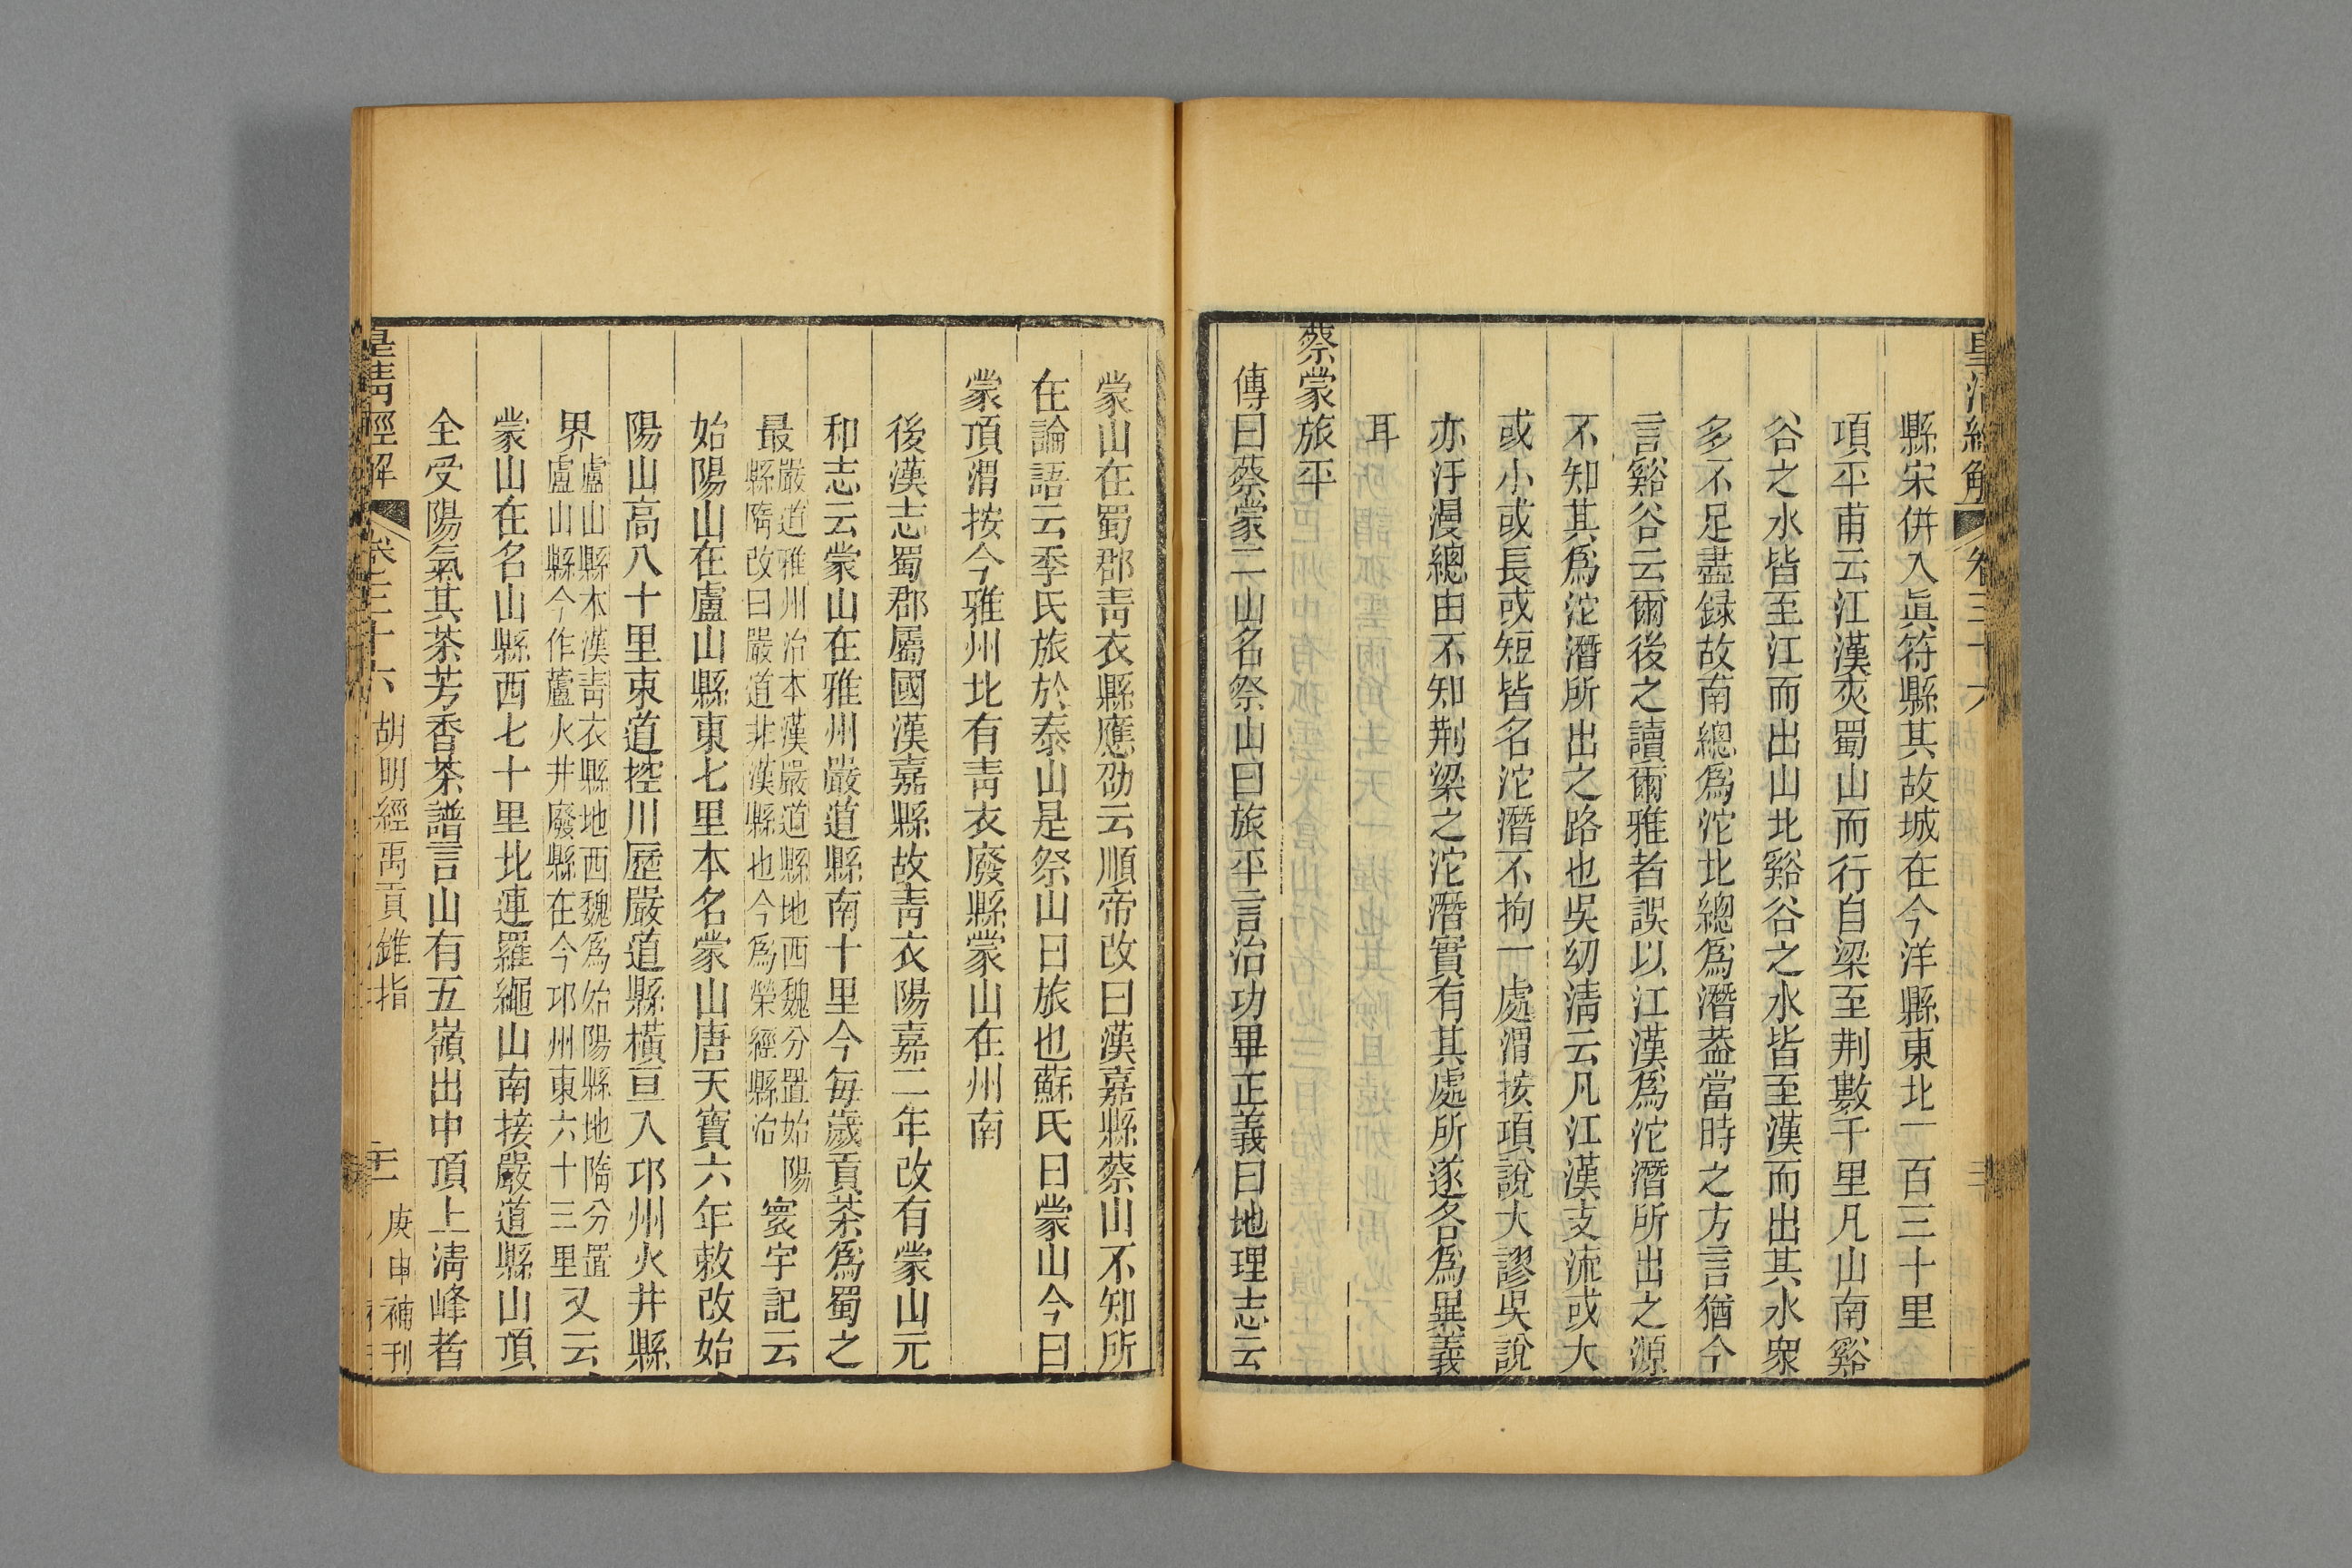 皇清經解 卷三十六
縣宋併入眞符縣其故城在今洋縣東北一百三十里
項平甫云江漢夾蜀山而行自梁至荆數千里凡山南谿
谷之水皆至江而出山北谿谷之水皆至漢而出其水衆
多不足盡録故南總爲沱北總爲潛葢當時之方言猶今
言谿谷云爾後之讀爾雅者誤以江漢爲沱潛所出之源
不知其爲沱潛所出之路也吳幼淸云凡江漢支流或大
或小或長或短皆名沱潛不拘一處渭按項說大謬吳說
亦汙漫總由不知荆梁之沱潛實有其處所遂各爲異義
耳
蔡蒙旅平
傳曰蔡蒙二山名祭山曰旅平言治功畢正義曰地理志云
蒙山在蜀郡靑衣縣應劭云順帝改曰漢嘉縣蔡山不知所
在論語云季氏旅於泰山是祭山曰旅也蘇氏曰蒙山今曰
蒙頂渭按今雅州北有靑衣廢縣蒙山在州南
後漢志蜀郡屬國漢嘉縣故靑衣陽嘉二年改有蒙山元
和志云蒙山在雅州嚴道縣南十里今每歲貢茶爲蜀之
最嚴道雅州治本漢嚴道縣地西魏分置始陽
縣隋改曰嚴道非漢縣也今爲榮經縣治寰宇記云
始陽山在盧山縣東七里本名蒙山唐天寶六年敕改始
陽山高八十里東道控川歷嚴道縣橫亘入邛州火井縣
界盧山縣本漢靑衣縣地西魏爲始陽縣地隋分置
盧山縣今作蘆火井廢縣在今邛州東六十三里又云
蒙山在名山縣西七十里北連羅繩山南接嚴道縣山頂
全受陽氣其茶芳香茶譜言山有五嶺出中頂上淸峰者
皇清經解 卷三十六 胡明經禹貢錐指 庚申補刊